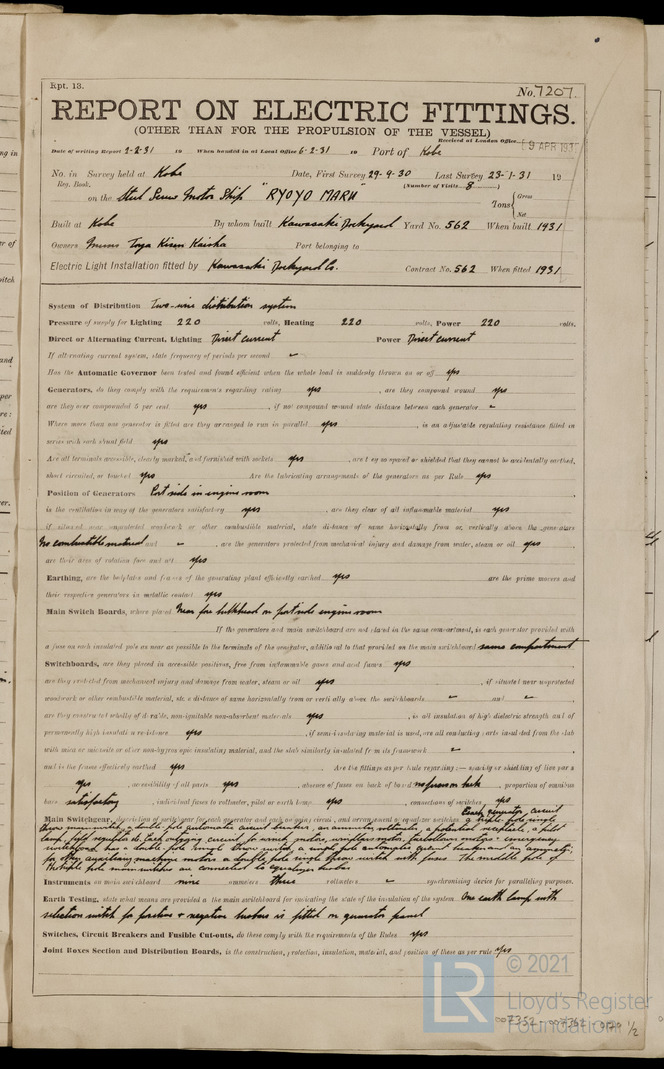 Rpt. 13.
No. 7207.
REPORT ON ELECTRIC FITTINGS.
(OTHER THAN FOR THE PROPULSION OF THE VESSEL)
Received at London Office 9 APR 1931
Date of writing Report 2-2-31 19 When handed in at Local Office 6-2-31 19 Port of Kobe
No. in Survey held at Kobe Date, First Survey 29-9-30 Last Survey 23-1-31 19
Reg. Book. (Number of Visits 8)
on the Steel Screw Motor Ship "RYOYO MARU" Tons { Gross
Net
Built at Kobe By whom built Kawasaki Dockyard Yard No. 562 When built 1931
Owners Messrs Toyo Kisen Kaisha Port belonging to
Electric Light Installation fitted by Kawasaki Dockyard Co. Contract No. 562 When fitted 1931
System of Distribution Two-wire distribution system
Pressure of supply for Lighting 220 volts, Heating 220 volts, Power 220 volts.
Direct or Alternating Current, Lighting Direct current Power Direct current
If alternating current system, state frequency of periods per second -
Has the Automatic Governor been tested and found efficient when the whole load is suddenly thrown on or off yes
Generators, do they comply with the requirements regarding rating yes, are they compound wound yes
are they over compounded 5 per cent. yes, if not compound wound state distance between each generator -
Where more than one generator is fitted are they arranged to run in parallel yes, is an adjustable regulating resistance fitted in
series with each shunt field yes
Are all terminals accessible, clearly marked, and furnished with sockets yes, are they so spaced or shielded that they cannot be accidentally earthed,
short circuited, or touched yes Are the lubricating arrangements of the generators as per Rule yes
Position of Generators Port side in engine room
is the ventilation in way of the generators satisfactory yes, are they clear of all inflammable material yes
if situated near unprotected woodwork or other combustible material, state distance of same horizontally from or vertically above the generators
No combustible material and -, are the generators protected from mechanical injury and damage from water, steam or oil yes
are their axes of rotation fore and aft yes
Earthing, are the bedplates and frames of the generating plant efficiently earthed yes are the prime movers and
their respective generators in metallic contact yes
Main Switch Boards, where placed Near fore bulkhead on port side engine room
If the generators and main switchboard are not placed in the same compartment, is each generator provided with
a fuse on each insulated pole as near as possible to the terminals of the generator, additional to that provided on the main switchboard same compartment
Switchboards, are they placed in accessible positions, free from inflammable gases and acid fumes yes
are they protected from mechanical injury and damage from water, steam or oil yes, if situated near unprotected
woodwork or other combustible material, state distance of same horizontally from or vertically above the switchboards - and -
are they constructed wholly of durable, non-ignitable non-absorbent materials yes, is all insulation of high dielectric strength and of
permanently high insulation resistance yes, if semi-insulating material is used, are all conducting parts insulated from the slab
with mica or micanite or other non-hygroscopic insulating material, and the slab similarly insulated from its framework -
and is the frame effectively earthed yes Are the fittings as per Rule regarding:— spacing or shielding of live parts
yes, accessibility of all parts yes, absence of fuses on back of board no fuses on back, proportion of omnibus
bars satisfactory, individual fuses to voltmeter, pilot or earth lamp yes, connections of switches yes
Main Switchgear, description of switchgear for each generator and each outgoing circuit, and arrangement of equalizer switches Each generator circuit
a triple-pole single
throw main switch, a double-pole automatic circuit breaker, an ammeter, voltmeter, a potential receptacle, a pilot
Instruments on main switchboard nine ammeters three voltmeters - synchronising device for paralleling purposes.
Earth Testing, state what means are provided at the main switchboard for indicating the state of the insulation of the system One earth lamp with
selection switch for positive & negative busbars is fitted on generator panel
Switches, Circuit Breakers and Fusible Cut-outs, do these comply with the requirements of the Rules yes
Joint Boxes Section and Distribution Boards, is the construction, protection, insulation, material, and position of these as per rule yes
LR © 2021
Lloyd's Register
Foundation
007352 - 007362 - 0120 1/2